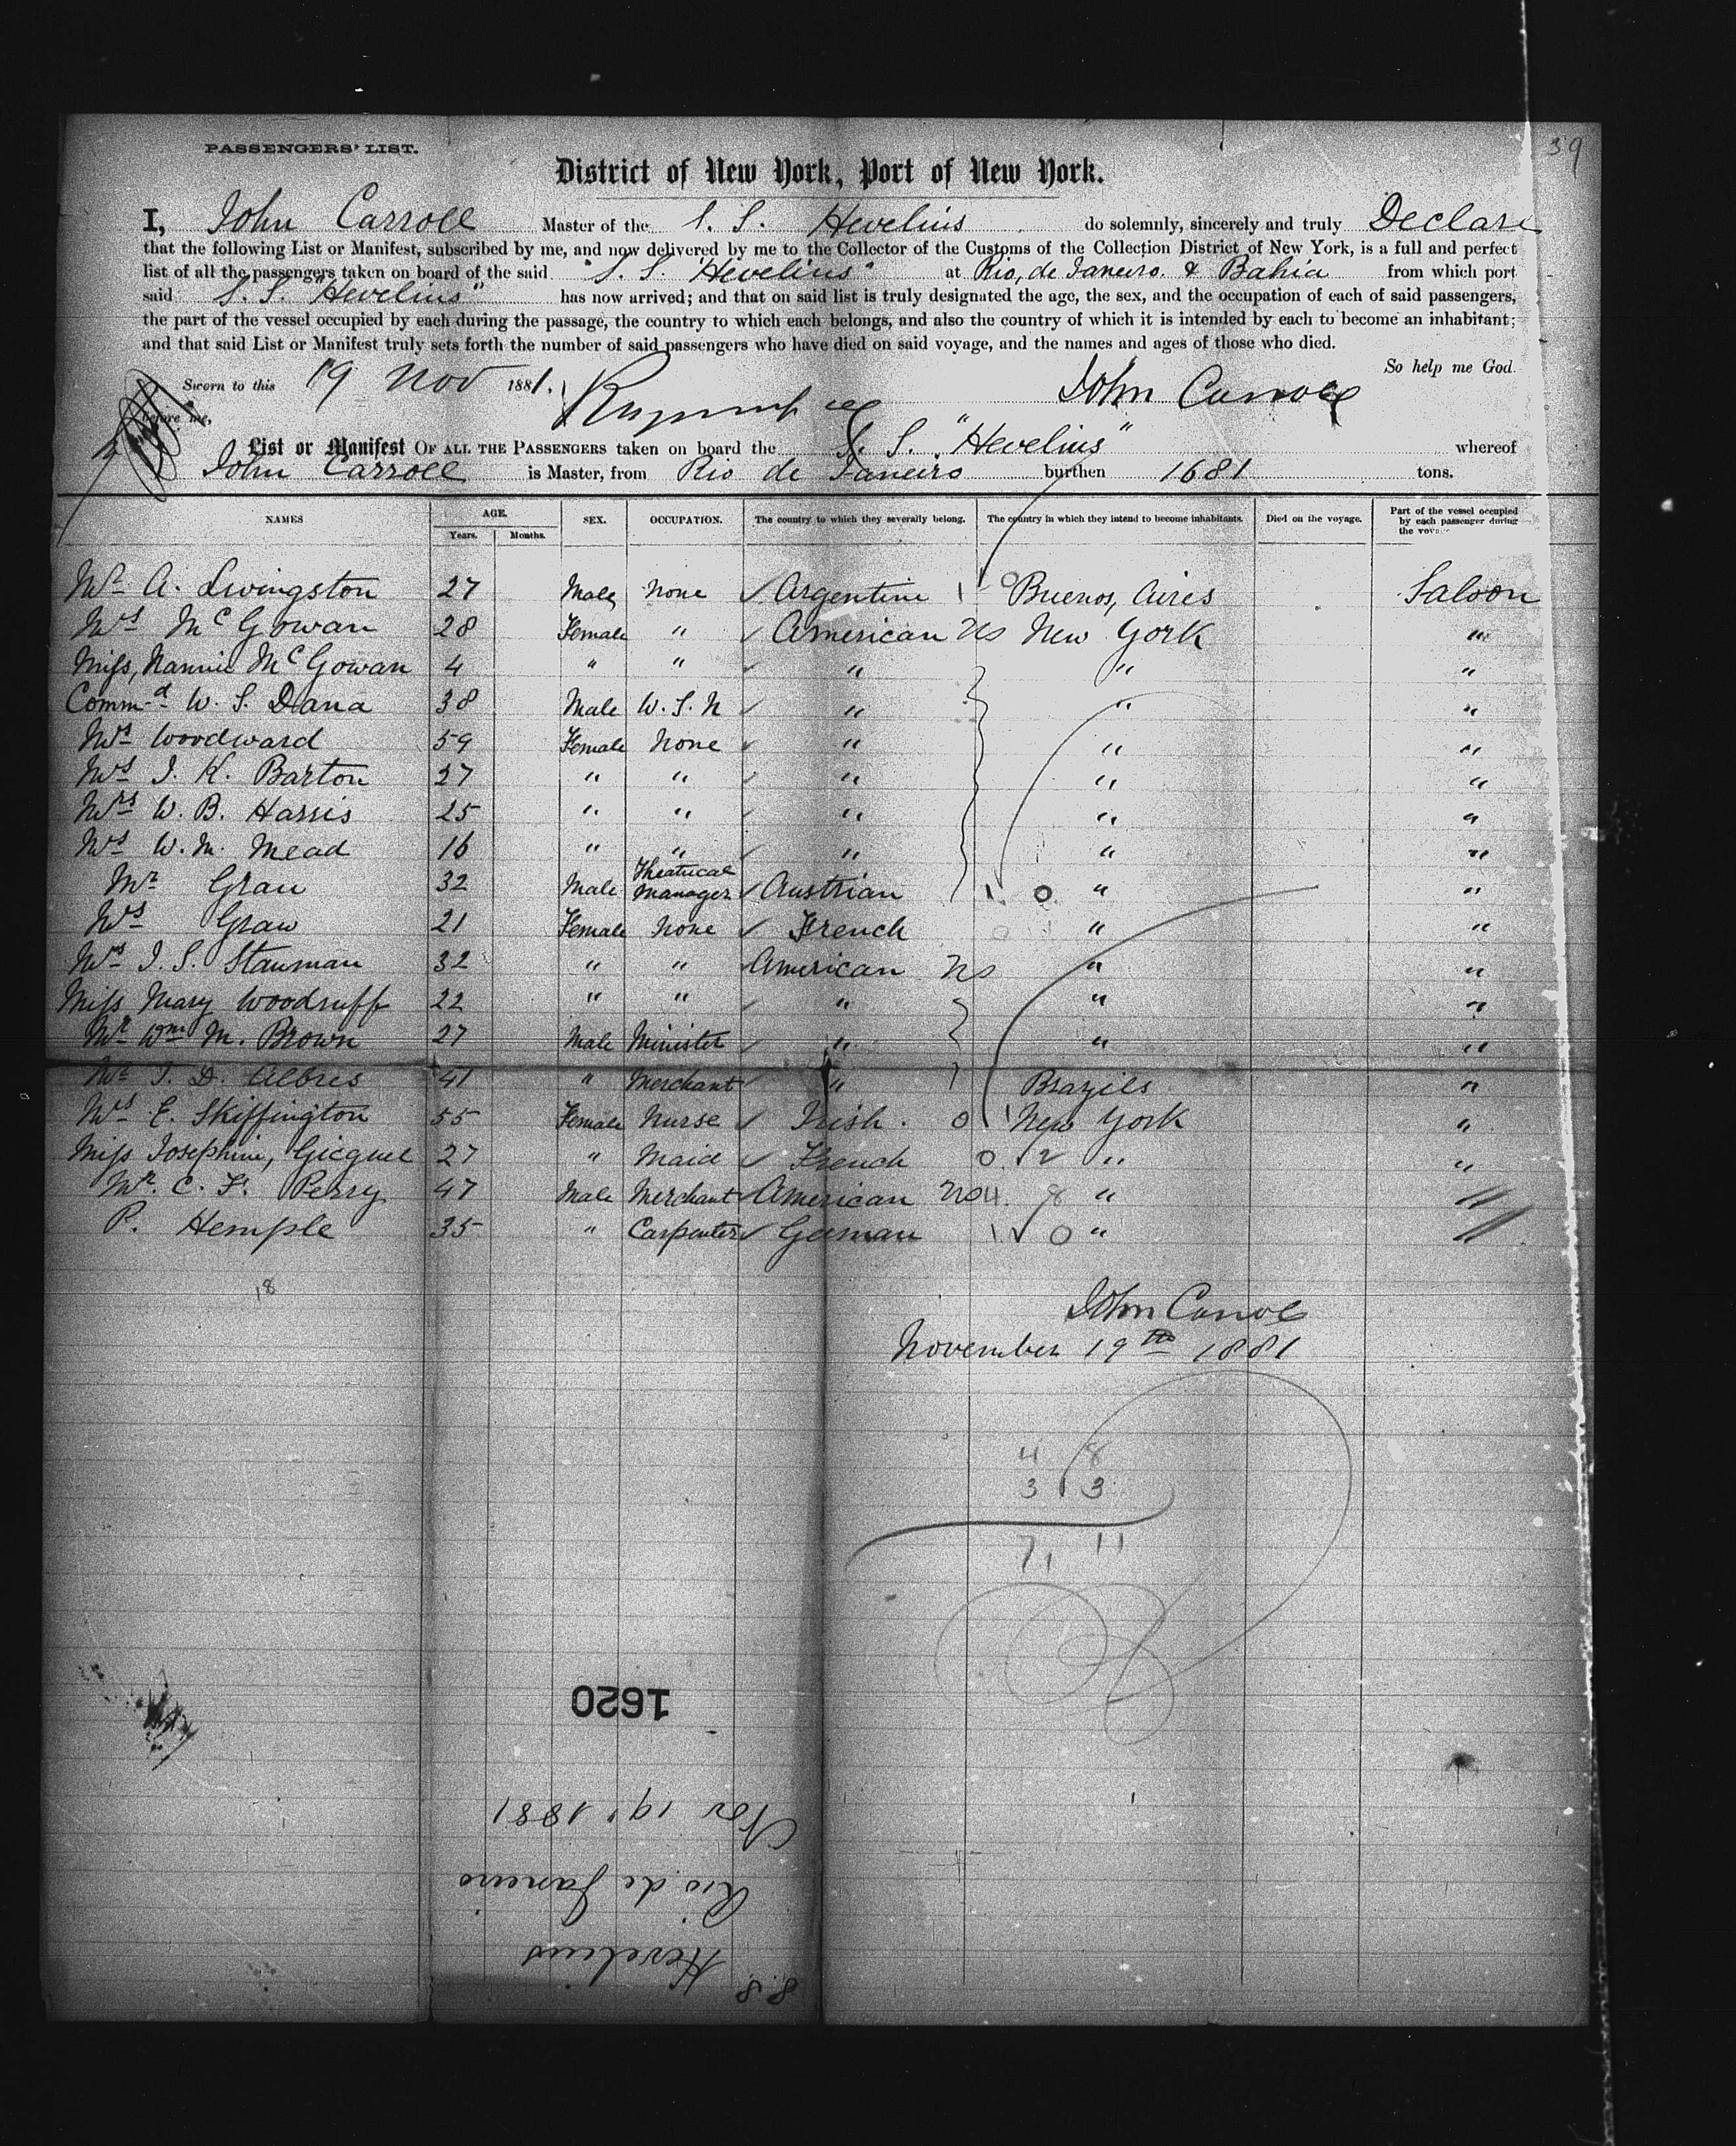 39
PASSENGERS' LIST.
District of New York, Port of New York.
I, John Carroll Master of the S. S. Hevelius do solemnly, sincerely and truly Declare
that the following List or Manifest, subscribed by me, and now delivered by me to the Collector of the Customs of the Collection District of New York, is a full and perfect
list of all the passengers taken on board of the said "S. S. Hevelius" at Rio, de Janeiro. & Bahia from which port
said S. S. "Hevelius" has now arrived; and that on said list is truly designated the age, the sex, and the occupation of each of said passengers,
the part of the vessel occupied by each during the passage, the country to which each belongs, and also the country of which it is intended by each to become an inhabitant;
and that said List or Manifest truly sets forth the number of said passengers who have died on said voyage, and the names and ages of those who died.
So help me God.
Sworn to this 19 Nov 1881. John Carroll
before me,
List or Manifest OF ALL THE PASSENGERS taken on board the S. S. "Hevelius" whereof
John Carroll is Master, from Rio de Janeiro burthen 1681 tons.
NAMES AGE. SEX. OCCUPATION. The country to which they severally belong. The country in which they intend to become inhabitants. Died on the voyage. Part of the vessel occupied by each passenger during the voya
Years. Months.
Mr A. Livingston 27 Male None ✓ Argentine 1 0 Buenos, Aires Saloon
Mrs McGowan 28 Female " ✓ American US New York "
Miss, Nannie McGowan 4 " " ✓ " " "
Commd W. S. Dana 38 Male W. S. N ✓ " " "
Mrs Woodward 59 Female None ✓ " " "
Mrs J. K. Barton 27 " " ✓ " " "
Mrs W. B. Harris 25 " " ✓ " " "
Mrs W. M. Mead 16 " " ✓ " " "
Mr Grau 32 Male Theatrical Manager ✓ Austrian 1. 0. " "
Mrs Graw 21 Female None ✓ French " "
Mrs J. S. Stauman 32 " " American US " "
Miss Mary Woodruff 22 " " ✓ " " "
Mr Wm M. Brown 27 Male Minister ✓ " " "
Mr J. D. Albres 41 " Merchant ✓ " Brazils "
Mrs E. Skiffington 55 Female Nurse ✓ Irish. 0 1 New York "
Miss Josephine, Gicquel 27 " Maid ✓ French 0. ✓ 2 " "
Mr. C. F. Perry 47 Male Merchant ✓ American US 4. 8 " "
P. Hemple 35 " Carpenter ✓ German 1 ✓ 0 " "
18
John Carroll
November 19th 1881
4 8
3 1 3
7, 11
1620
Nov 19, 1881
Rio de Janeiro
Hevelius